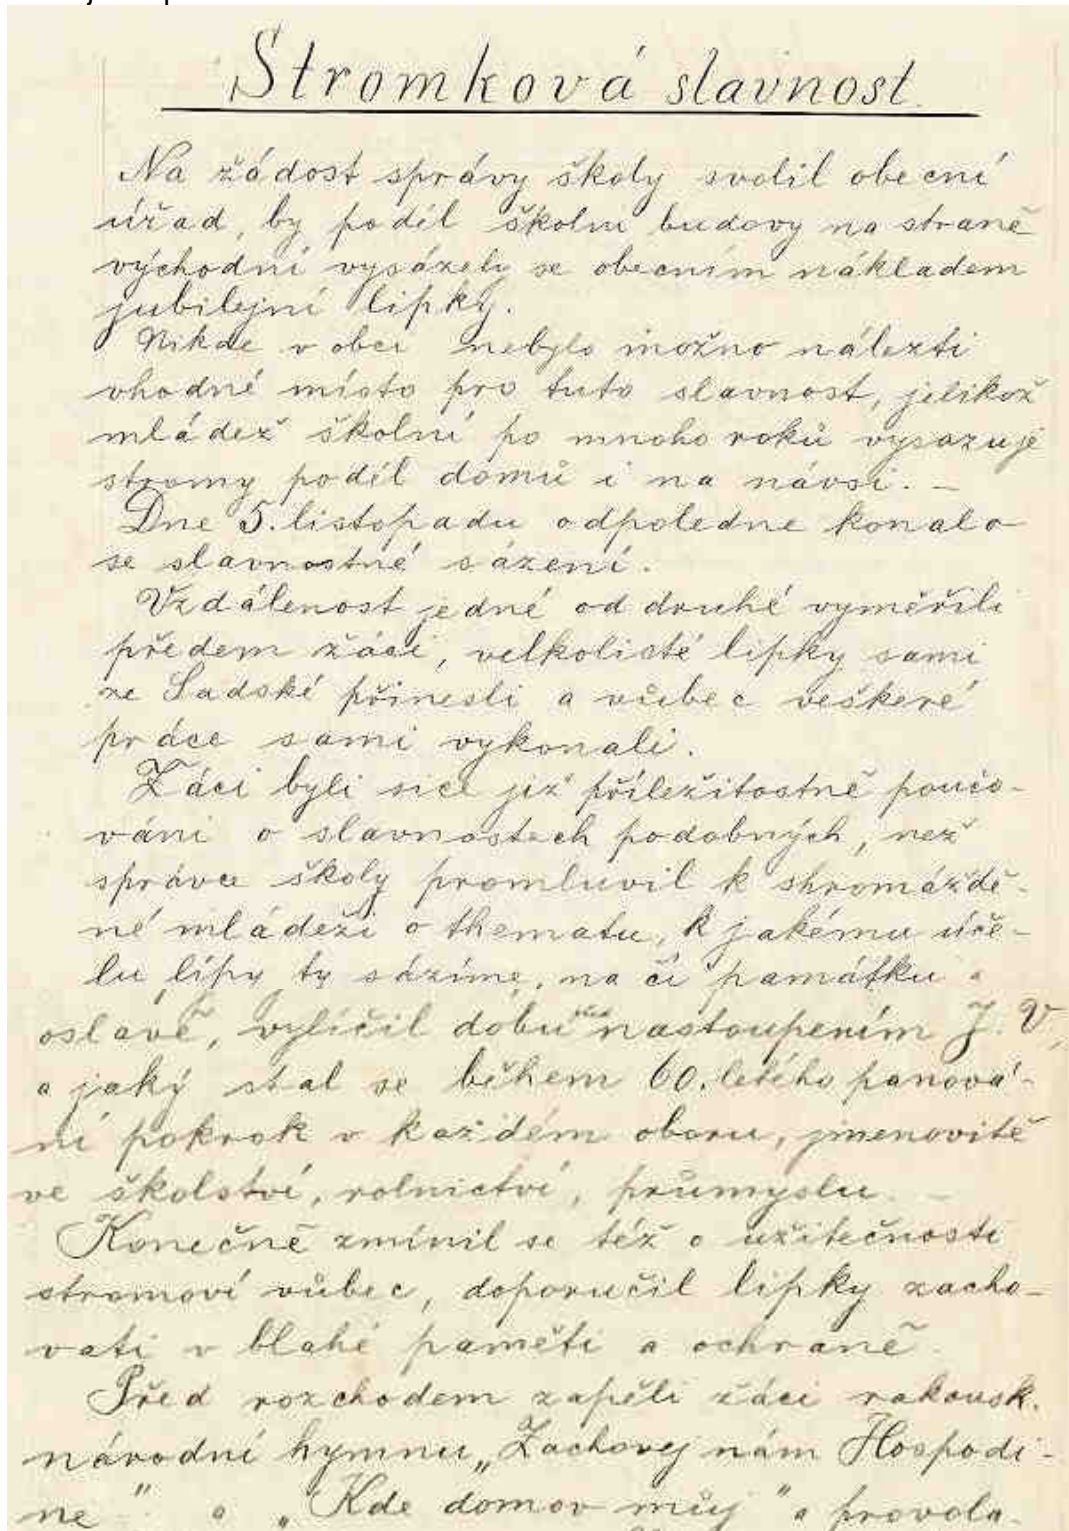 Stromková slavnost
Na žádost správy školy svolil obecní
úřad, by podél školní budovy na straně
východní vysázely se obecním nákladem
jubilejní lipky.
Nikde v obci nebylo možno nalézti
vhodné místo pro tuto slavnost, jelikož
mládež školní po mnoho roků vysazuje
stromy podél domů i na návsi. –
Dne 5. listopadu odpoledne konalo
se slavnostné sázení.
Vzdálenost jedné od druhé vyměřili
předem žáci, velkolisté lipky sami
ze Sadské přinesli a vůbec veškeré
práce sami vykonali.
Žáci byli sice již příležitostně poučo-
váni o slavnostech podobných, než
správce školy promluvil k shromáždě-
né mládeži o thematu, k jakému úče-
lu lípy ty sázíme, na čí památku a
oslavě, vylíčil dobu nastoupením J. V.
a jaký stal se během 60. letého panová-
ní pokrok v každém oboru, jmenovitě
ve školství, rolnictví, průmyslu. –
Konečně zmínil se též o užitečnosti
stromoví vůbec, doporučil lipky zacho-
vati v blahé paměti a ochraně.
Před rozchodem zapěli žáci rakousk.
národní hymnu „Zachovej nám Hospodi-
ne" a „Kde domov můj" a provola-